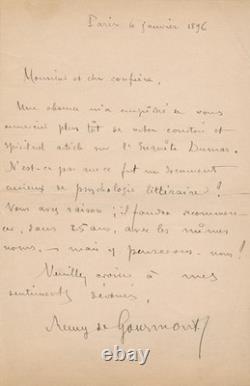 Paris 6 janvier 1896
Monsieur et cher confrère,
Une absence m'a empêché de vous
remercier plus tôt de votre courtois et
spirituel article sur l'Enquête Dumas.
N'est-ce pas que ce fut un document
curieux de psychologie littéraire ?
Vous avez raison ; il faudra recommen-
cer, dans 25 ans, avec les mêmes
noms, — mais y penserons-nous !
Veuillez croire à mes
sentiments dévoués,
Remy de Gourmont
© worthpoint